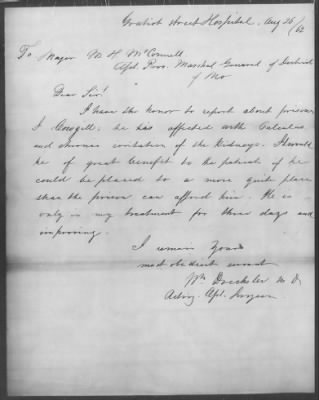 Gratiot Street Hospital, Aug 26/62
To Major M H McConnell
Apt. Prov. Marshal General of District
of Mo
Dear Sir!
I have the honor to report about prisoner
I he has affected with Calculus
and irritation of the Kidneys. It would
be of great benefit to the patient if he
could be placed to a more quite place
than the prison can afford him. He is
only in my treatment for three days and
improving.
I remain Yours
most obedient servant
Wm Drechsler M D
Acting Apt. Surgeon